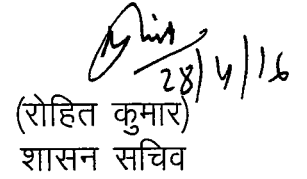 28/4/16
(रोहित कुमार)
शासन सचिव